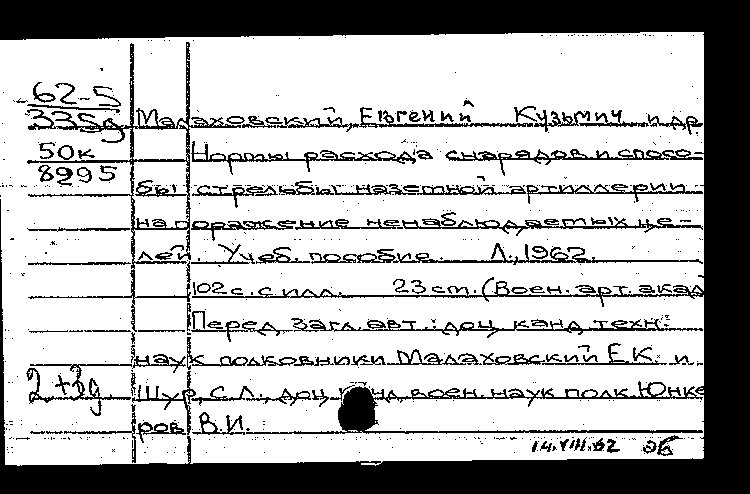 62-5
335д Малаховский, Евгений Кузьмич и др
50к Нормы расхода снарядов и спосо-
8295
бы стрельбы наземной артиллерии
на поражение ненаблюдаемых це-
лей. Учеб. пособие. Л., 1962.
102 с. с илл. 23 см. (Воен. арт. акад
Перед загл. авт.: доц. канд. техн.
наук полковники Малаховский Е.К. и
2+3д Щур, С.Л., доц. канд. воен. наук полк. Юнке
ров В.И.
14.VIII.62